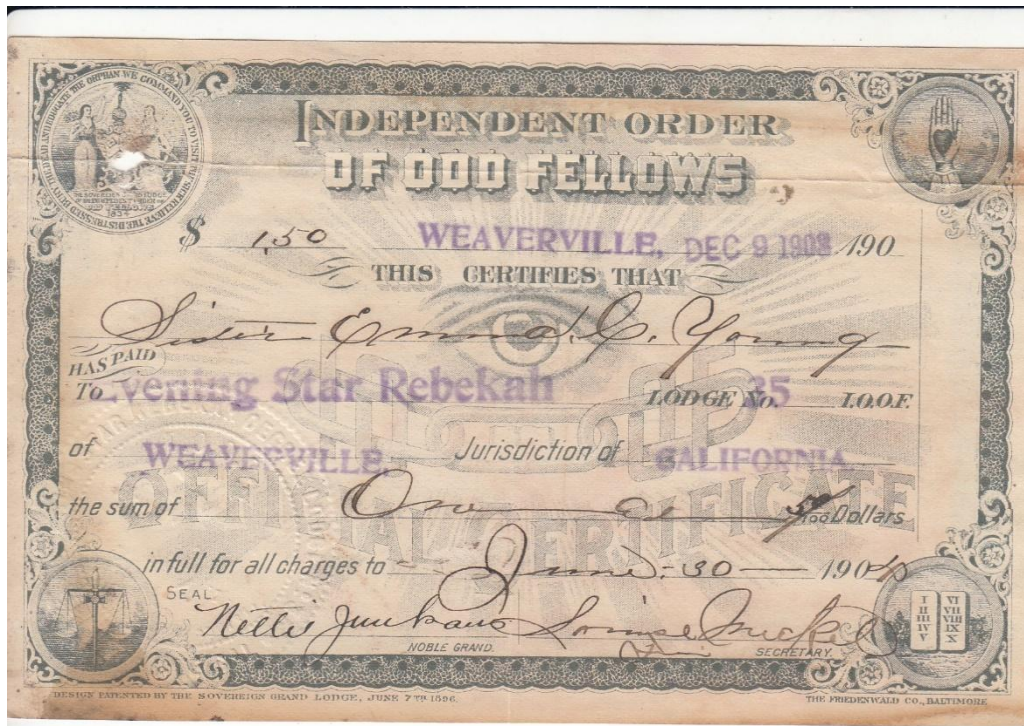 INDEPENDENT ORDER
OF ODD FELLOWS
$ 1.50 WEAVERVILLE, DEC 9 1903 190
THIS CERTIFIES THAT
Sister Emma C. Young
HAS PAID
To Evening Star Rebekah LODGE No. 35 I.O.O.F.
of WEAVERVILLE Jurisdiction of CALIFORNIA
OFFICIAL CERTIFICATE
the sum of One & 50/100 Dollars
in full for all charges to June 30 190
SEAL
Nettie Junkans
NOBLE GRAND. SECRETARY.
I VI
II VII
III VIII
IV IX
V X
DESIGN PATENTED BY THE SOVEREIGN GRAND LODGE, JUNE 7TH 1896.
THE FRIEDENWALD CO., BALTIMORE